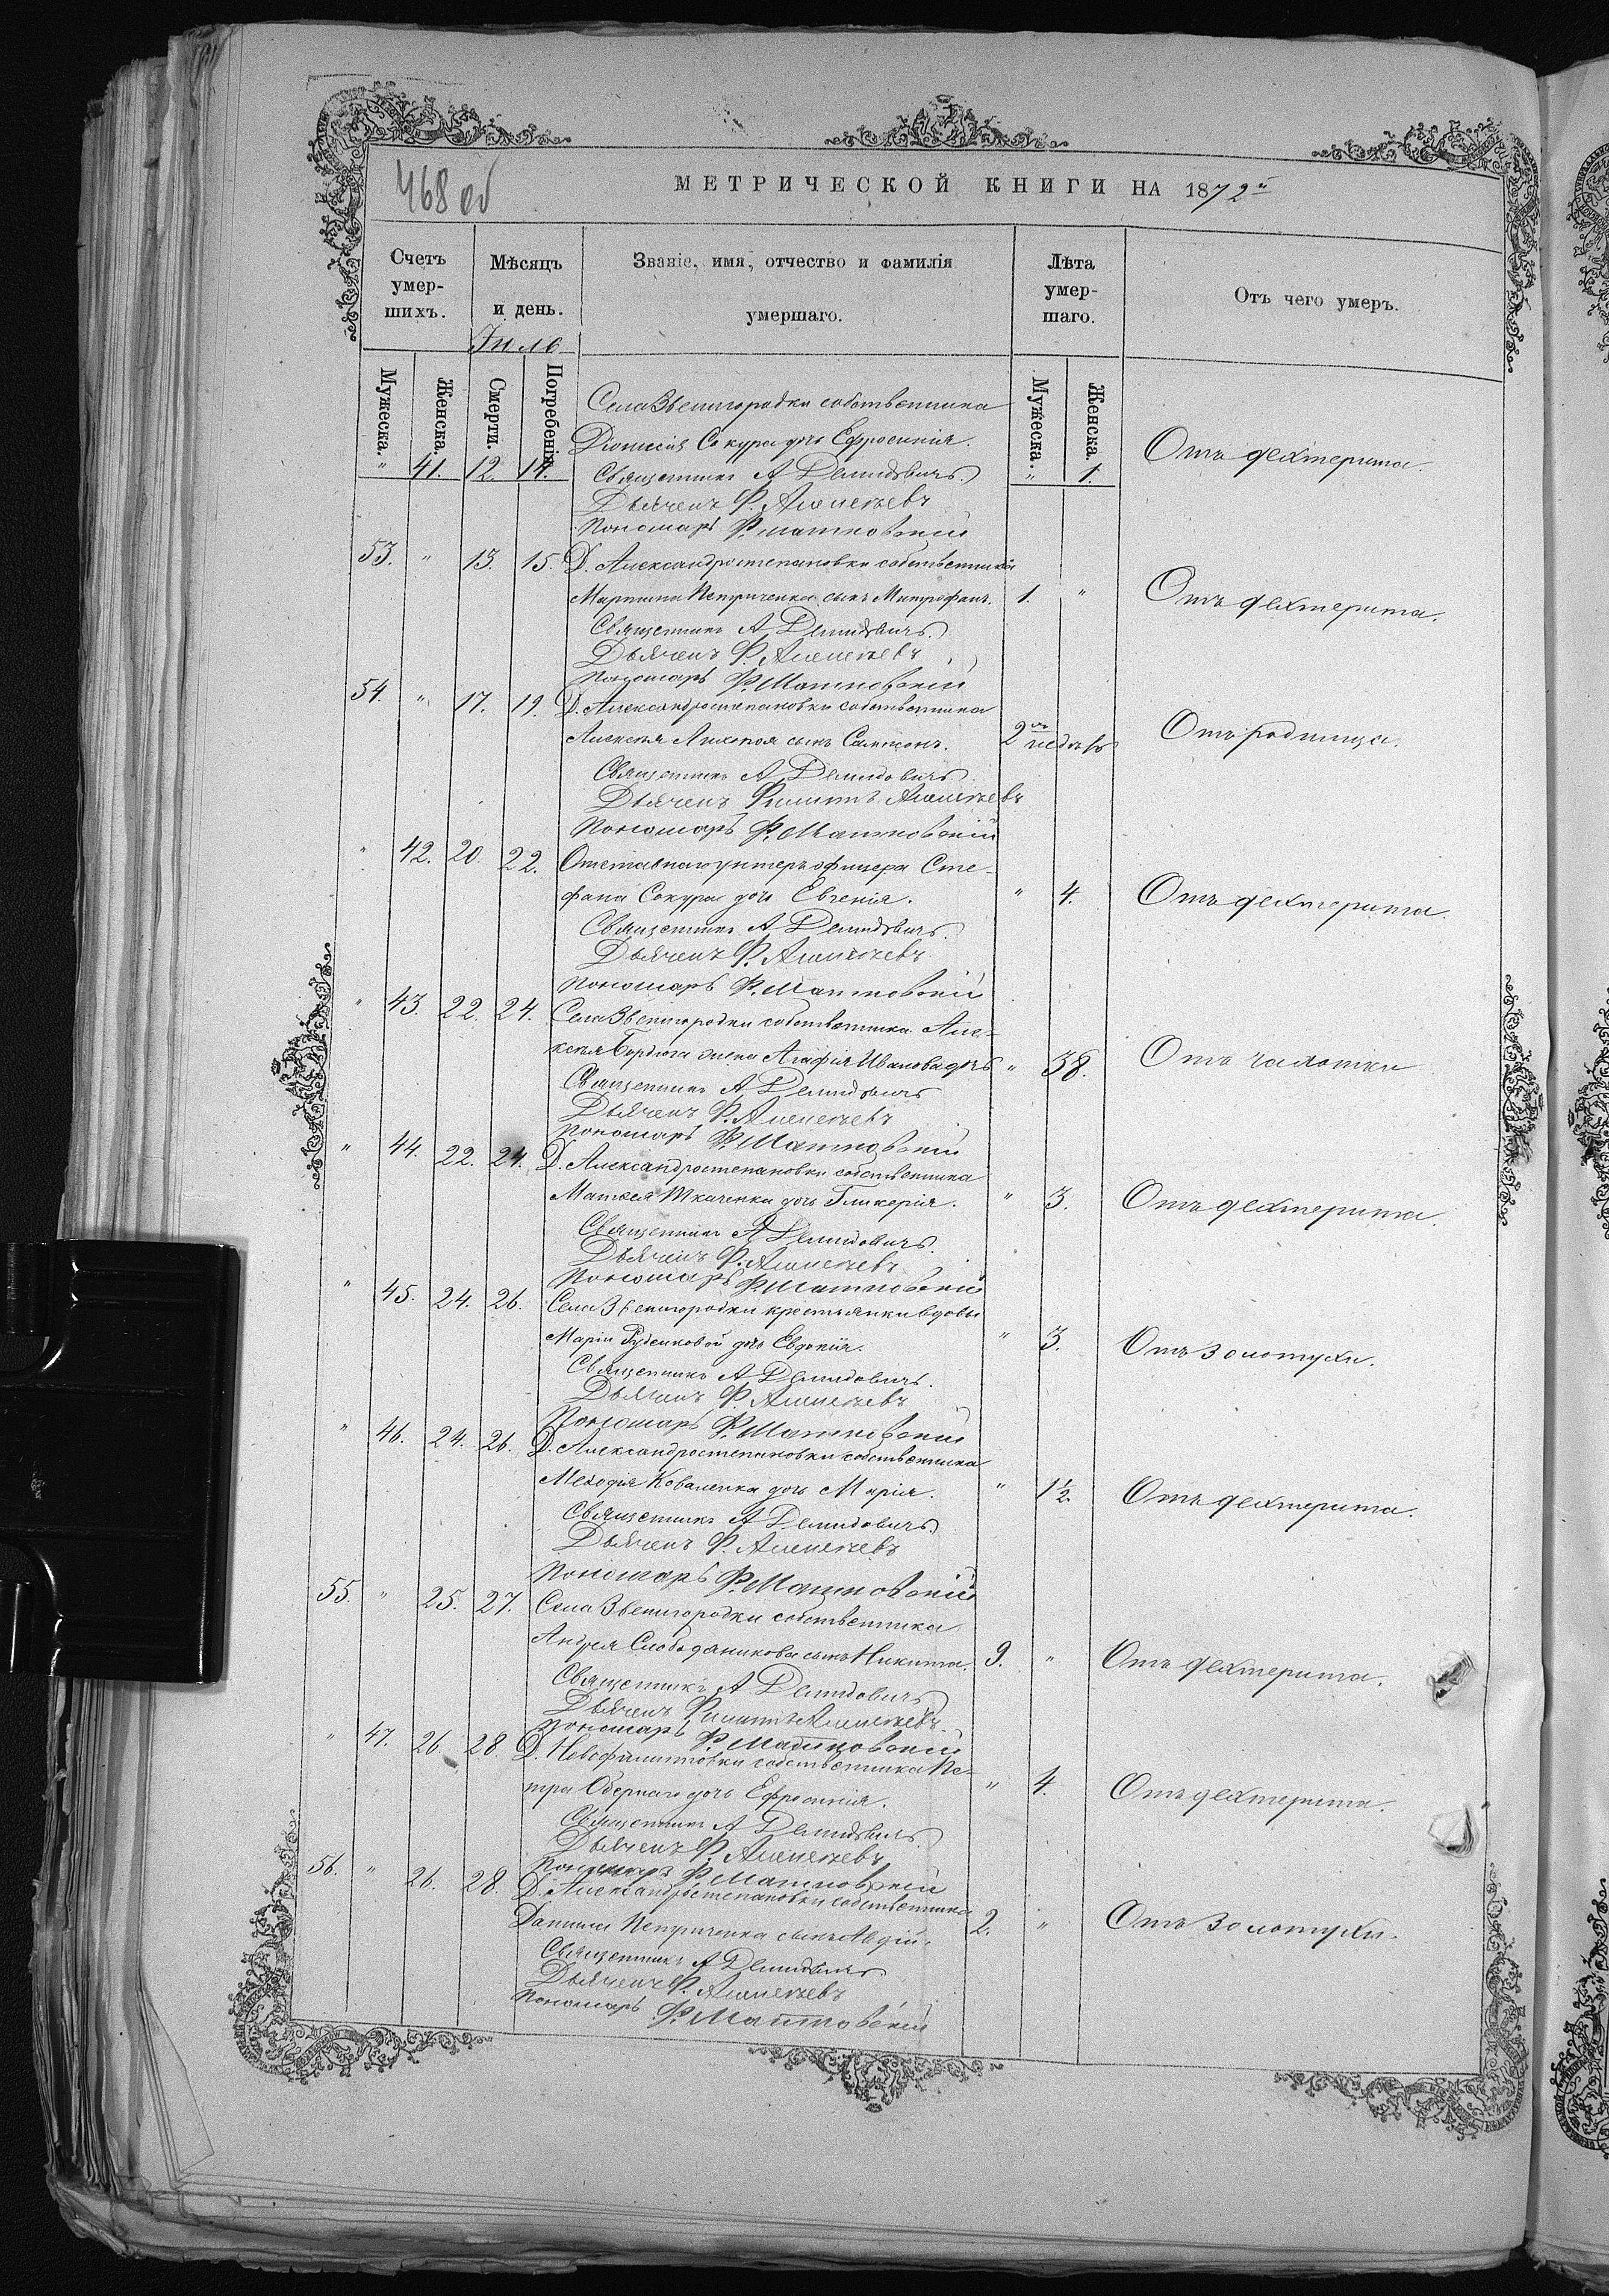 468 об
МЕТРИЧЕСКОЙ КНИГИ НА 1872й
Счетъ умер-шихъ.
Мѣсяцъ и день.
Званіе, имя, отчество и фамилія умершаго.
Лѣта умер-шаго.
Отъ чего умеръ.
Іюль
Мужеска. Женска. Смерти. Погребенія. Мужеска. Женска.
Села Звенигородки собственника
Діонисія Сокура дочь Ефросинія.
" 41. 12. 14. " 1. Отъ дехтерита.
Священникъ А Демидовичъ.
Дьячекъ Ф. Алексѣевъ
Пономарь Ф. Матковскій
53. " 13. 15. Д. Александростепановки собственника
Мартина Петриченка сынъ Митрофанъ. 1. " Отъ дехтерита.
Священникъ А Демидовичъ.
Дьячекъ Ф. Алексѣевъ
Пономарь Ф. Матковскій
54. " 17. 19. Д. Александростепановки собственника
Алексѣя сынъ Сампсонъ. 2хъ недѣль Отъ родимца.
Священникъ А Демидовичъ
Дьячекъ Филиппъ Алексѣевъ
Пономарь Ф. Матковскій
" 42. 20. 22. Отставнаго унтеръ офицера Сте-
фана Сокура дочь Евгенія. " 4. Отъ дехтерита.
Священникъ А Демидовичъ.
Дьячекъ Ф. Алексѣевъ
Пономарь Ф. Матковскій
" 43. 22. 24. Села Звенигородки собственника Але-
ксѣя жена Агафія Иванова дочь " 38. Отъ чахотки
Священникъ А Демидовичъ
Дьячекъ Ф. Алексѣевъ
Пономарь Ф. Матковскій
" 44. 22. 24. Д. Александростепановки собственника
Матвея Ткаченка дочь Гликерія. " 3. Отъ дехтерита.
Священникъ А Демидовичъ.
Дьячекъ Ф. Алексѣевъ
Пономарь Ф. Матковскій
" 45. 24. 26. Села Звенигородки крестьянки вдовы
Маріи Руденковой дочь Евдокія. " 3. Отъ золотухи.
Священникъ А Демидовичъ.
Дьячекъ Ф. Алексѣевъ
Пономарь Ф. Матковскій
" 46. 24. 26. Д. Александростепановки собственника
Мефодія Коваленка дочь Марія. " 1½. Отъ дехтерита.
Священникъ А Демидовичъ.
Дьячекъ Ф. Алексѣевъ
Пономарь Ф. Матковскій
55. " 25. 27. Села Звенигородки собственника
Андрея Слободяникова сынъ Никита. 9. " Отъ дехтерита.
Священникъ А Демидовичъ
Дьячекъ Филиппъ Алексѣевъ
Пономарь Ф. Матковскій
" 47. 26. 28. Д. собственника Пе-
тра дочь Ефросинія. " 4. Отъ дехтерита.
Священникъ А Демидовичъ
Дьячекъ Ф. Алексѣевъ
Пономарь Ф. Матковскій
56. " 26. 28. Д. Александростепановки собственника
Данила Петриченка сынъ Авдій. 2. " Отъ золотухи.
Священникъ А Демидовичъ
Дьячекъ Ф. Алексѣевъ
Пономарь Ф. Матковскій